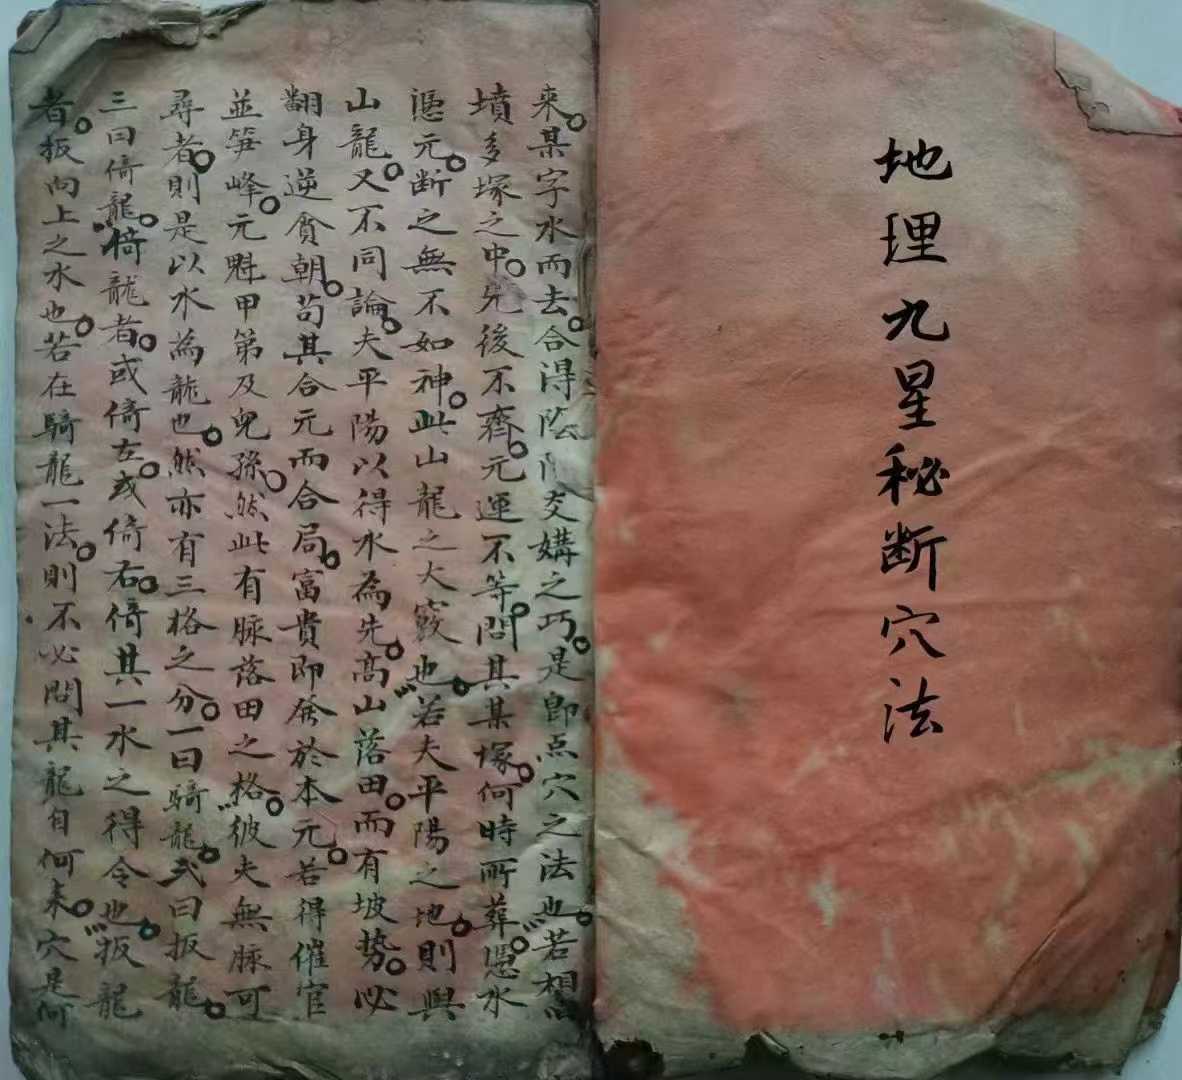 地理九星秘断穴法
來某字水而去合淂陰陽交媾之巧是即点穴之法也若相
墳多塚之中先後不齊元運不等問其某塚何時所葬憑水
憑元断之無不如神此山龍之大竅也若夫平陽之地則與
山龍又不同論夫平陽以得水為先高山落田而有坡势必
翻身逆貪朝苟其合元而合局富貴即發於本元若得催官
並笋峰元魁甲第及兒孫然此有脉落田之格彼夫無脉可
尋者則是以水為龍也然亦有三格之分一曰騎龍弍曰扳龍
三曰倚龍倚龍者或倚左或倚右倚其一水之得令也扳龍
者扳向上之水也若在騎龍一法則不必問其龍自何来穴是何